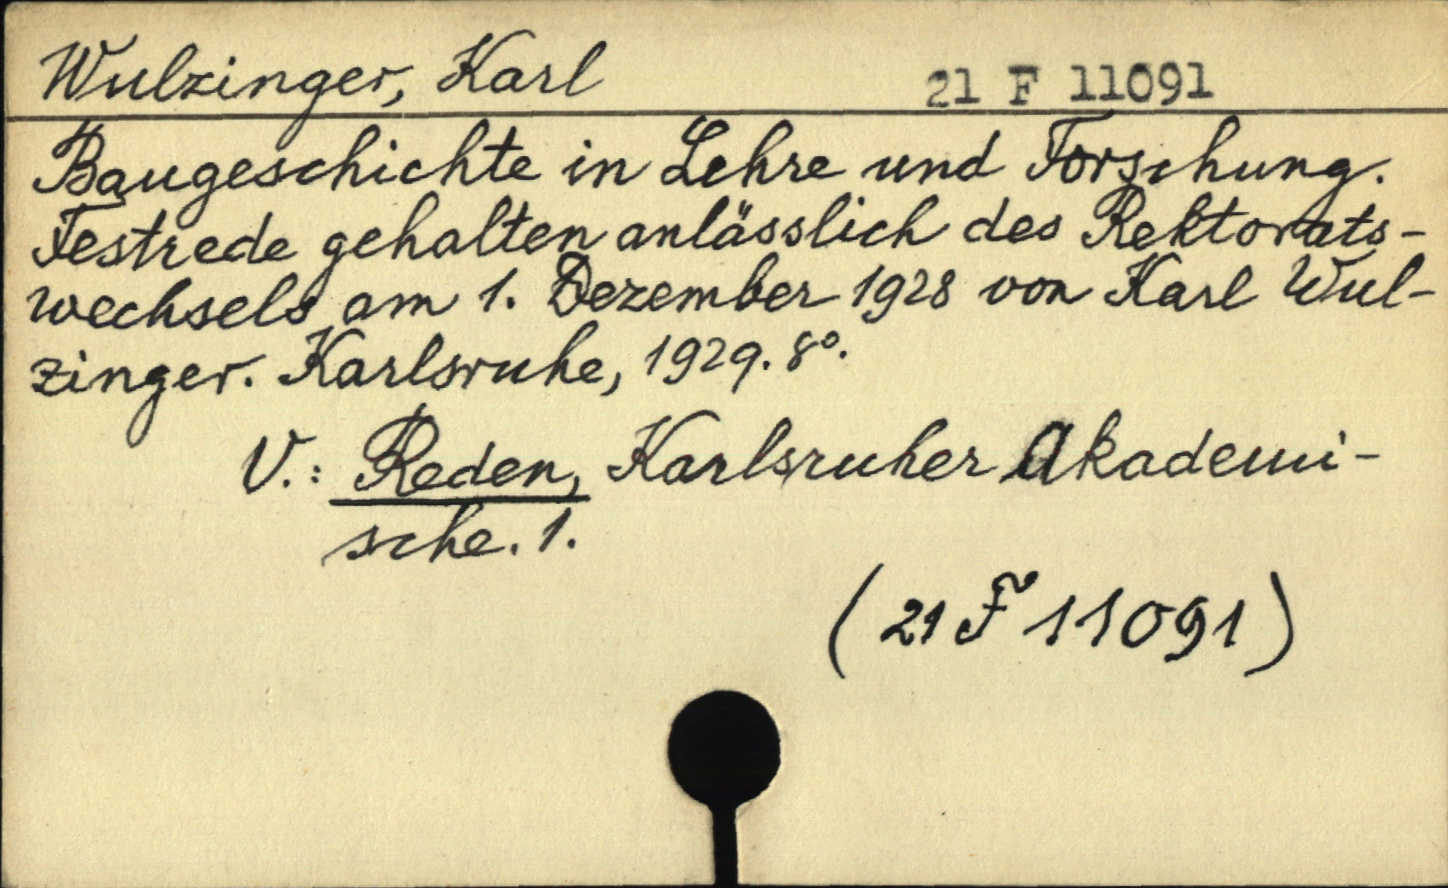 Wulzinger, Karl 21 F 11091
Baugeschichte in Lehre und Forschung.
Festrede gehalten anlässlich des Rektorats-
wechsels am 1. Dezember 1928 von Karl Wul-
zinger. Karlsruhe, 1929. 8°.
V.: Reden, Karlsruher Akademi-
sche. 1.
(21 F 11091)